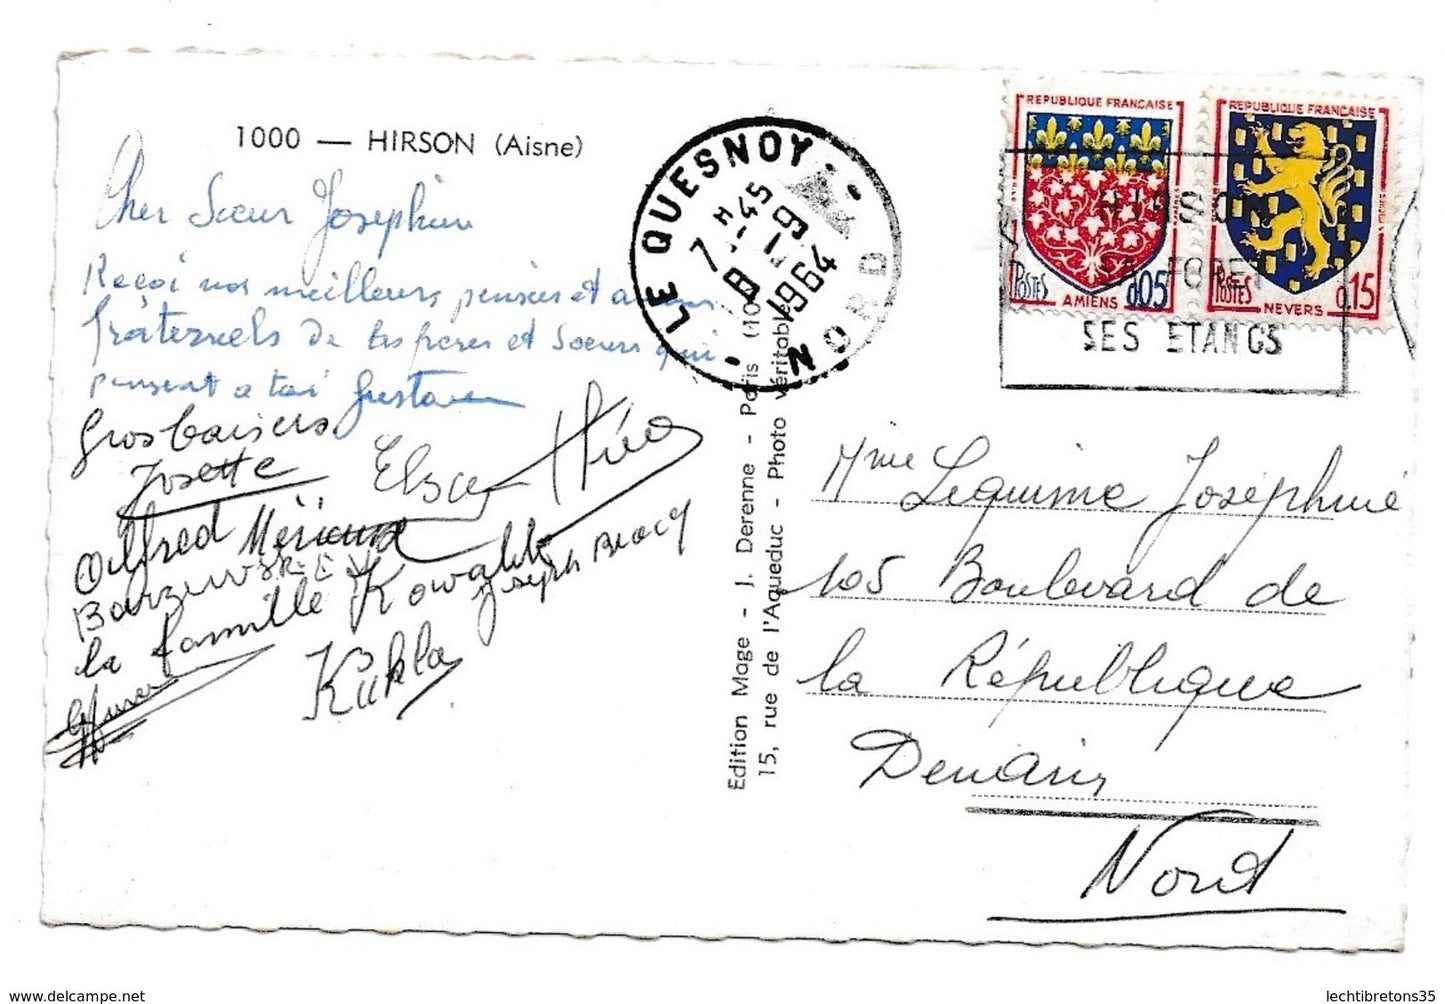 1000 — HIRSON (Aisne)
Cher Sœur Josephine
Reçoi nos meilleurs pensées et
fraternels de tes frères et Soeurs qui
pensent a toi Gustave
Gros baisers
Josette Elsa
Alfred
la famille Kowalski Joseph
Kukla
LE QUESNOY
NORD
7 H 45
8 - 9
1964
Edition Mage - J. Derenne - Paris (10
15, rue de l'Aqueduc - Photo véritable
REPUBLIQUE FRANÇAISE
POSTES AMIENS 0,05
REPUBLIQUE FRANÇAISE
POSTES NEVERS 0,15
HIRSON
SA FORET
SES ETANGS
Mme Lequime Joséphine
105 Boulevard de
la République
Denain
Nord
lechtibretons35